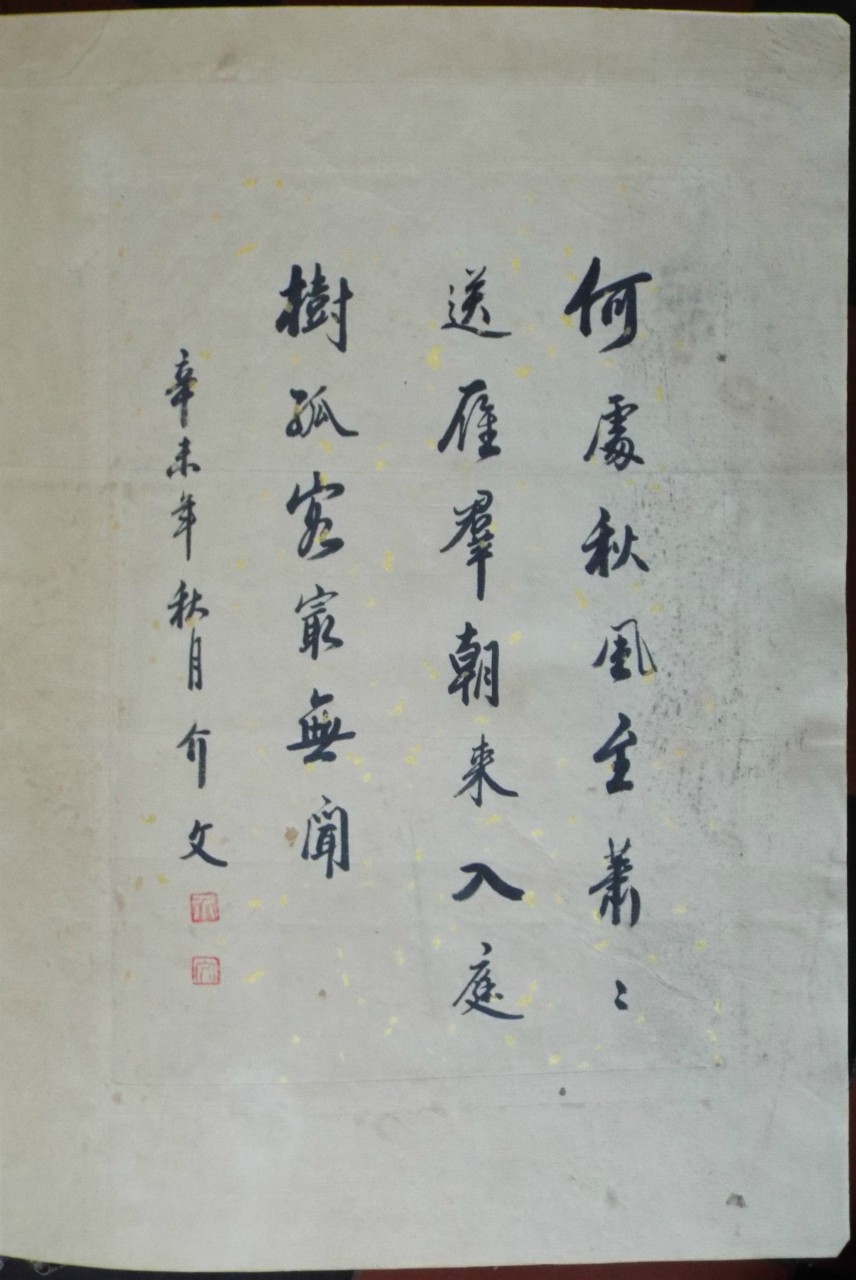 何處秋風至蕭〻
送雁羣朝来入庭
樹孤客寂無聞
辛未年秋月介文